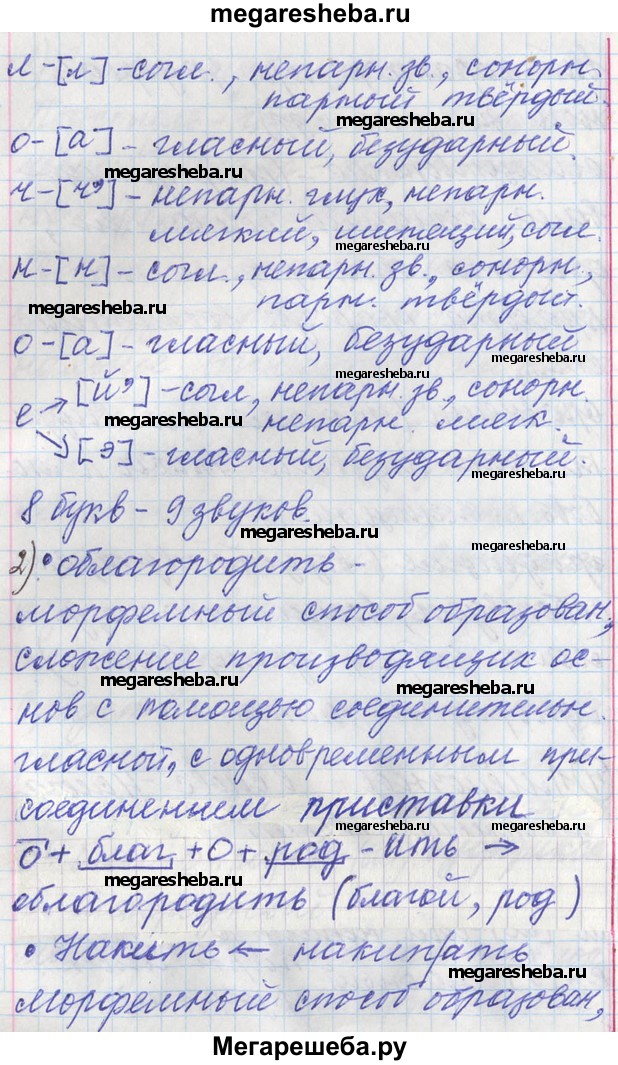 megaresheba.ru
л-[л] -согл., непарн. зв., сонорн.
парный твёрдый.
megaresheba.ru
о-[а] - гласный, безударный.
megaresheba.ru
ч-[ч'] - непарн. глух, непарн.
мягкий, шипящий, согл.
megaresheba.ru
н-[н] - согл., непарн. зв., сонорн.,
megaresheba.ru парн. твёрдый.
о-[а] - гласный, безударный
megaresheba.ru
[й'] -согл, непарн. зв., сонорн.
е megaresheba.ru непарн. мягк.
[э] - гласный, безударный.
megaresheba.ru
8 букв - 9 звуков.
megaresheba.ru
2) • облагородить -
морфемный способ образован,
сложение производящих ос-
megaresheba.ru megaresheba.ru
нов с помощью соединительн.
гласной, с одновременным при-
megaresheba.ru
соединением приставки
megaresheba.ru
о + благ + о + род - ить →
megaresheba.ru
облагородить (благой, род)
• Накипь ← накип/ать
megaresheba.ru
морфемный способ образован,
megaresheba.ru
Мегарешеба.ру